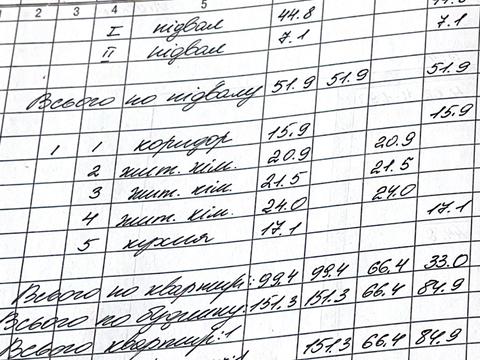 1 2 3 4 5
I підвал 44.8
II підвал 7.1 7.1
Всього по підвалу 51.9 51.9 51.9
1 1 коридор 15.9 15.9
2 жит. кім. 20.9 20.9
3 жит. кім. 21.5 21.5
4 жит. кім. 24.0 24.0
5 кухня 17.1 17.1
Всього по квартирі: 99.4 99.4 66.4 33.0
Всього по будинку: 151.3 151.3 66.4 84.9
Всього квартир: 1 151.3 66.4 84.9